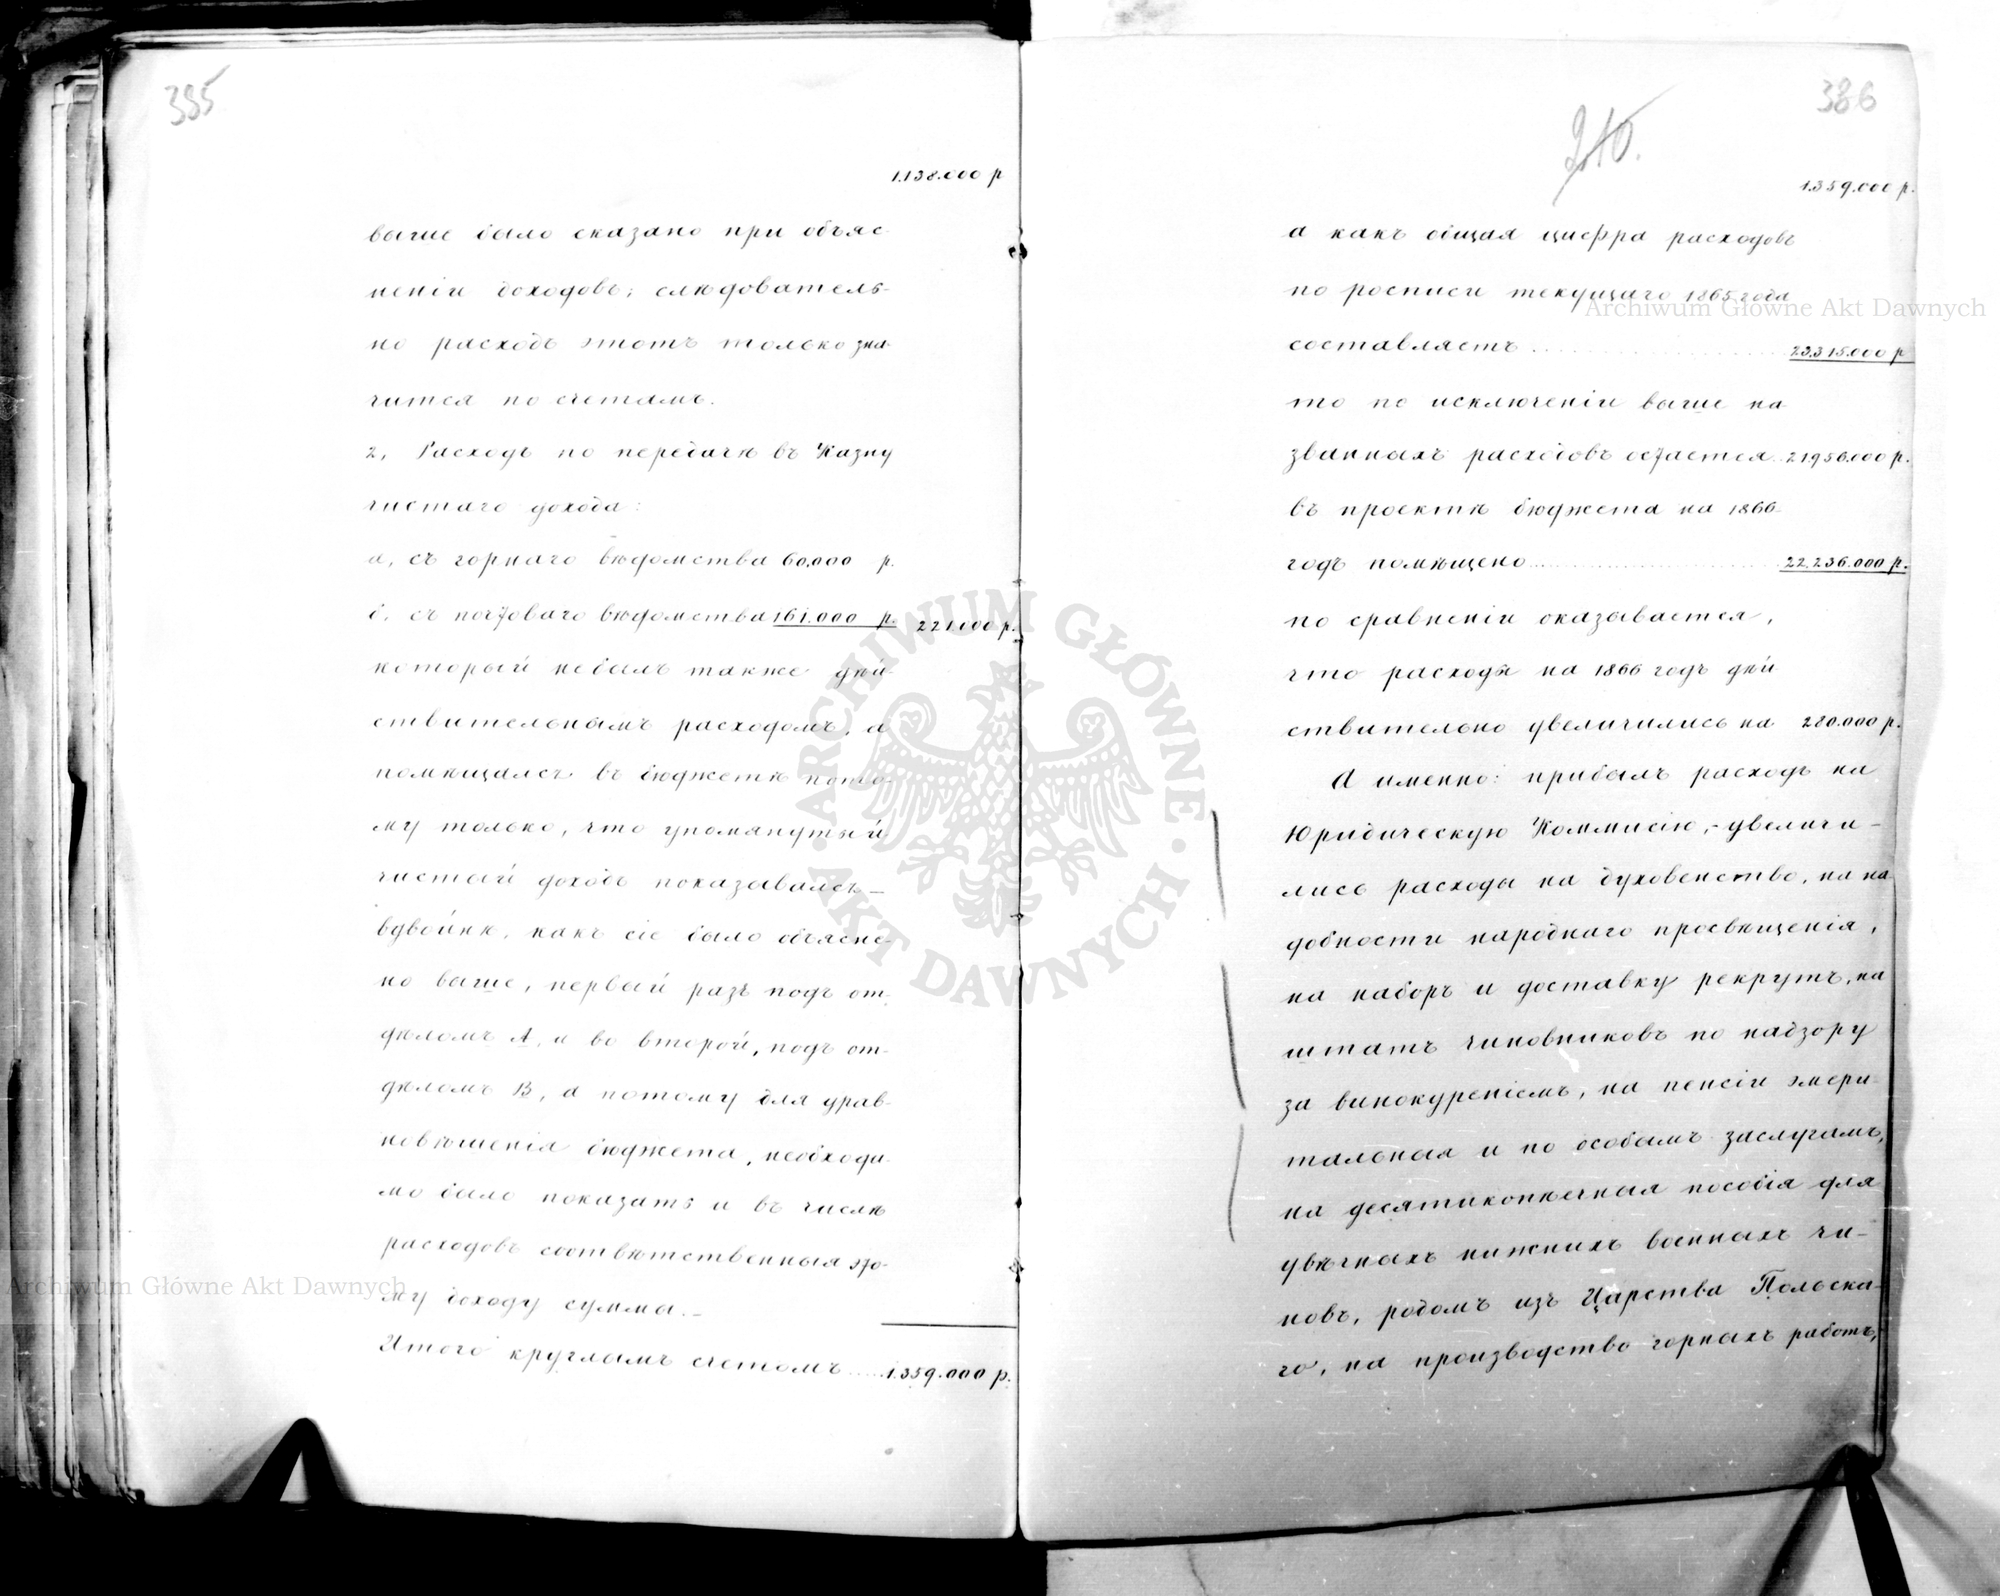 385
1.138.000 р
выше было сказано при объяс-
неніи доходовъ; слѣдователь-
но расходъ этотъ только зна-
чится по счетамъ.
2, Расходъ по передачѣ въ Казну
чистаго дохода:
а, съ горнаго вѣдомства 60.000 р.
б, съ почтоваго вѣдомства 161.000 р. 221.000 р.
который небылъ также дѣй-
ствительнымъ расходомъ, а
помѣщался въ бюджетѣ пото-
му только, что упомянутый
чистый доходъ показывался
вдвойнѣ, какъ сіе было объясне-
но выше, первый разъ подъ от-
дѣломъ А, а во второй, подъ от-
дѣломъ В, а потому для урав-
новѣшенія бюджета, необходи-
мо было показать и въ числѣ
расходовъ соотвѣтственныя это-
му доходу суммы.-
Итого круглымъ счетомъ ..... 1.359.000 р.
386
210.
1.359.000 р.
а какъ общая цифра расходовъ
по росписи текущаго 1865 года
составляетъ ........ 23.315.000 р
то по исключеніи выше на
званныхъ расходовъ остается. 21.956.000 р.
въ проектѣ бюджета на 1866
годъ помѣщено ........ 22.236.000 р.
по сравненіи оказывается,
что расходы на 1866 годъ дѣй
ствительно увеличились на 280.000 р.
А именно: прибылъ расходъ на
Юридическую Коммисію,- увеличи-
лись расходы на духовенство, на на
добности народнаго просвѣщенія,
на наборъ и доставку рекрутъ, на
штатъ чиновниковъ по надзору
за винокуреніемъ, на пенсіи эмери-
тальныя и по особымъ заслугамъ,
на десятикопѣечныя пособія для
увѣчныхъ нижнихъ военныхъ чи-
новъ, родомъ изъ Царства Польска-
го, на производство горныхъ работъ,
Archiwum Główne Akt Dawnych
Archiwum Główne Akt Dawnych
ARCHIWUM GŁÓWNE · AKT DAWNYCH ·